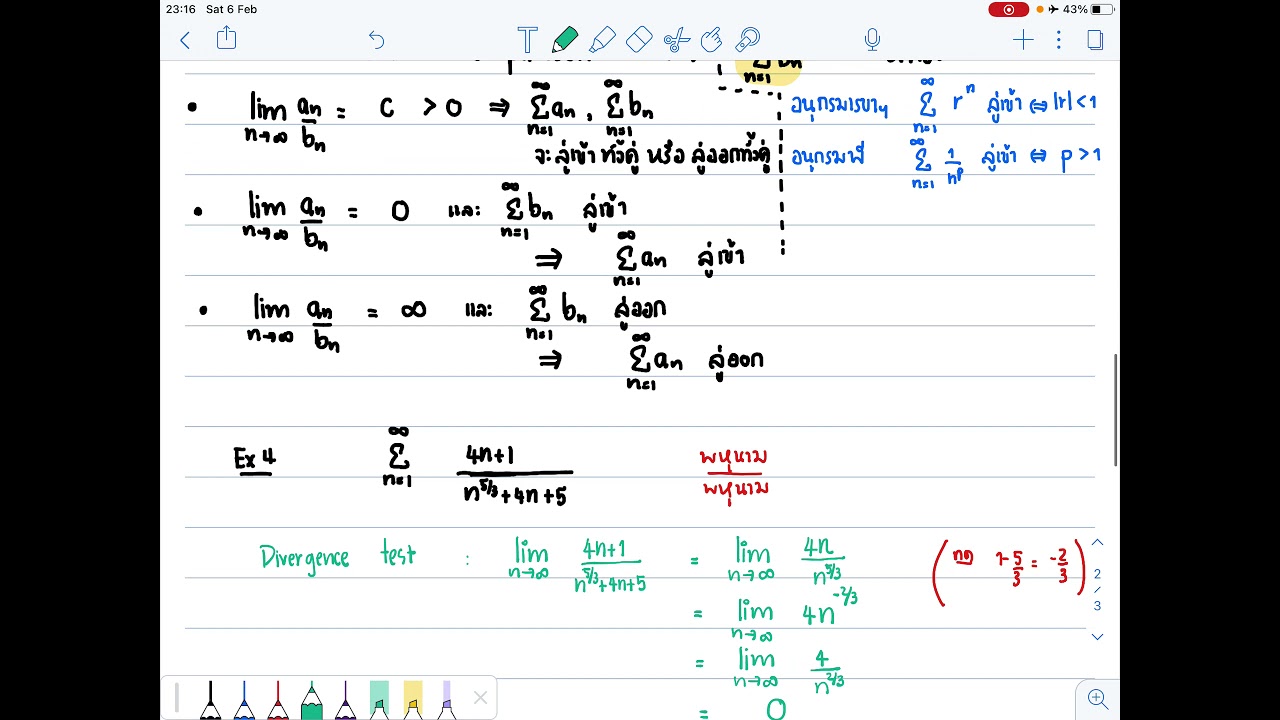 23:16 Sat 6 Feb 43%
n=1
• lim n→∞ an/bn = c > 0 ⇒ ∞Σn=1 an , ∞Σn=1 bn
จะ ลู่เข้า ทั้งคู่ หรือ ลู่ออกทั้งคู่
อนุกรมเรขาฯ ∞Σn=1 r^n ลู่เข้า ⇔ |r| < 1
อนุกรมพี ∞Σn=1 1/n^p ลู่เข้า ⇔ p > 1
• lim n→∞ an/bn = 0 และ ∞Σn=1 bn ลู่เข้า
⇒ ∞Σn=1 an ลู่เข้า
• lim n→∞ an/bn = ∞ และ ∞Σn=1 bn ลู่ออก
⇒ ∞Σn=1 an ลู่ออก
Ex 4 ∞Σn=1 (4n+1)/(n^5/3+4n+5)
พหุนาม
พหุนาม
Divergence test : lim n→∞ (4n+1)/(n^5/3+4n+5) = lim n→∞ 4n/n^5/3
(ทด 1-5/3 = -2/3)
= lim n→∞ 4n^-2/3
= lim n→∞ 4/n^2/3
= 0
2/3